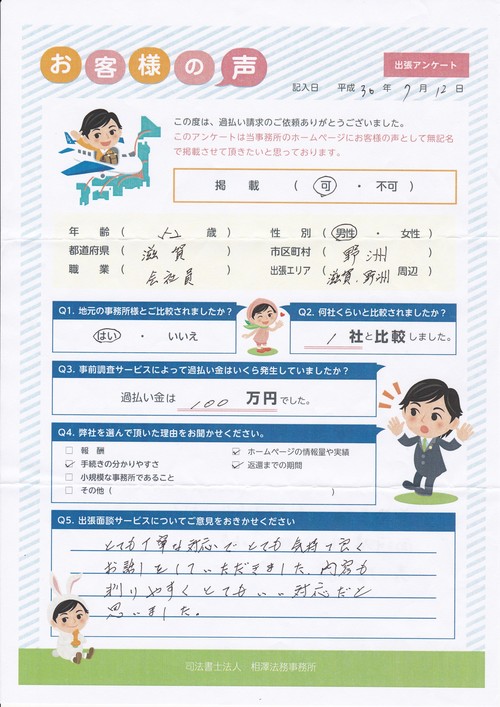 お客様の声
出張アンケート
記入日 平成 30 年 7 月 12 日
この度は、過払い請求のご依頼ありがとうございました。
このアンケートは当事務所のホームページにお客様の声として無記名
で掲載させて頂きたいと思っております。
掲 載 ( 可 ・ 不可 )
年 齢 ( 52 歳 ) 性 別 ( 男性 ・ 女性 )
都道府県 ( 滋賀 ) 市区町村 ( 野洲 )
職 業 ( 会社員 ) 出張エリア ( 滋賀、野洲 周辺 )
Q1. 地元の事務所様とご比較されましたか?
はい ・ いいえ
Q2. 何社くらいと比較されましたか?
1 社と比較しました。
Q3. 事前調査サービスによって過払い金はいくら発生していましたか?
過払い金は 100 万円でした。
Q4. 弊社を選んで頂いた理由をお聞かせください。
□ 報 酬 ☑ ホームページの情報量や実績
☑ 手続きの分かりやすさ ☑ 返還までの期間
□ 小規模な事務所であること
□ その他 ( )
Q5. 出張面談サービスについてご意見をおきかせください
とても丁寧な対応で とても 気持て良く
お話しをしていただきました。内容も
判りやすく とてもいい対応だと
思いました。
司法書士法人 相澤法務事務所